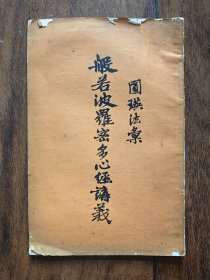 圓瑛法彙
般若波羅密多心經講義